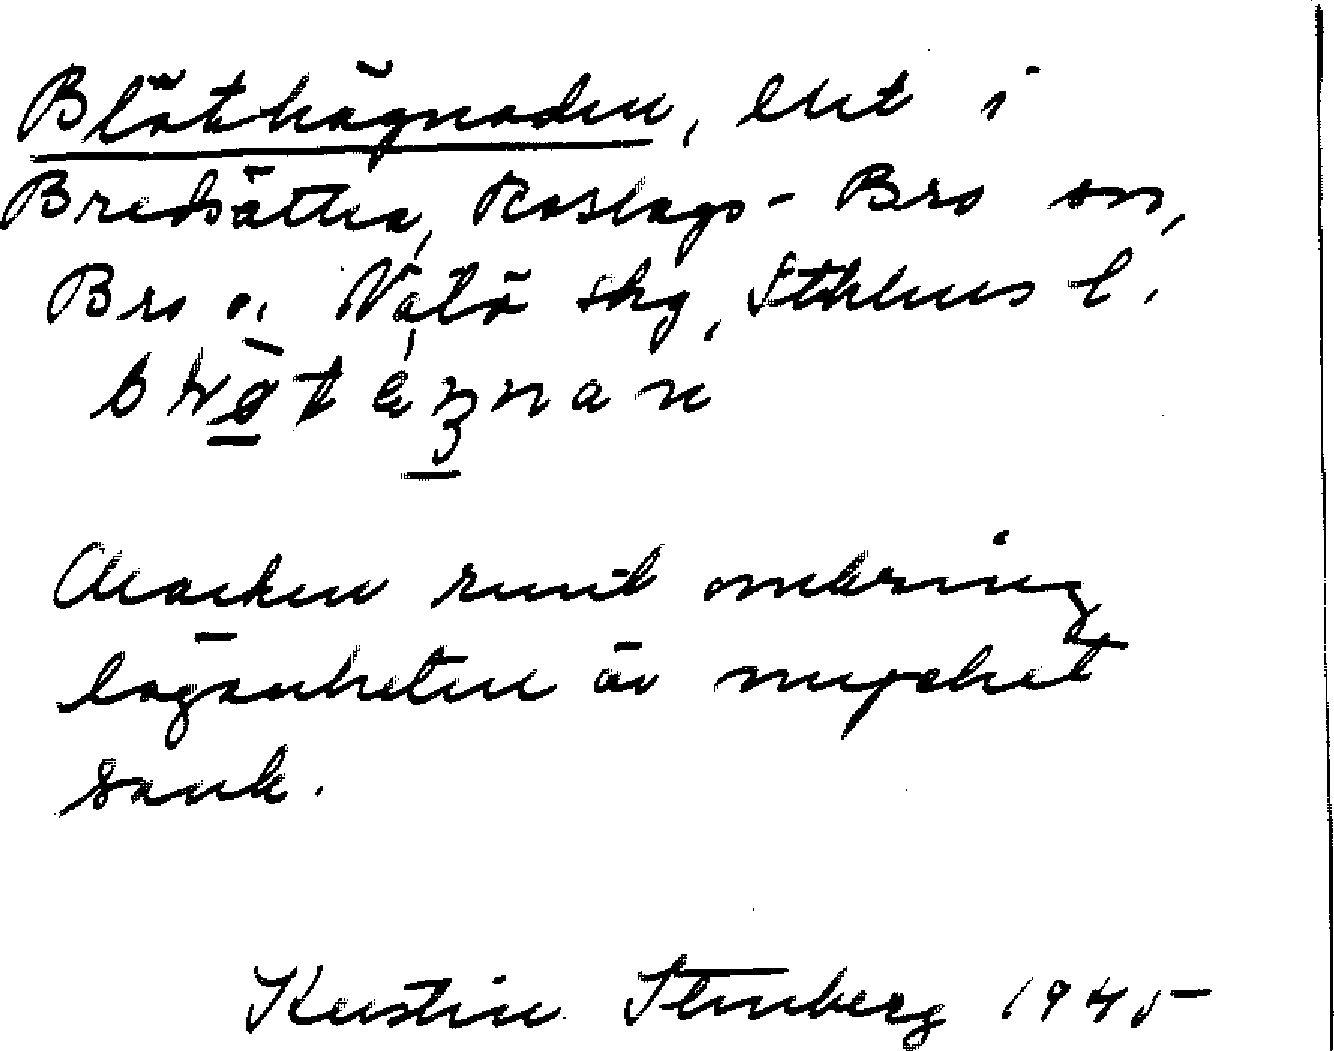 Blöthägnaden, lht i
Bredsättra, Roslags-Bro sn,
Bro o. Vätö skg, Sthlms l.
Marken runt omkring
lägenheten är mycket
sank.
Kerstin Stenberg 1945